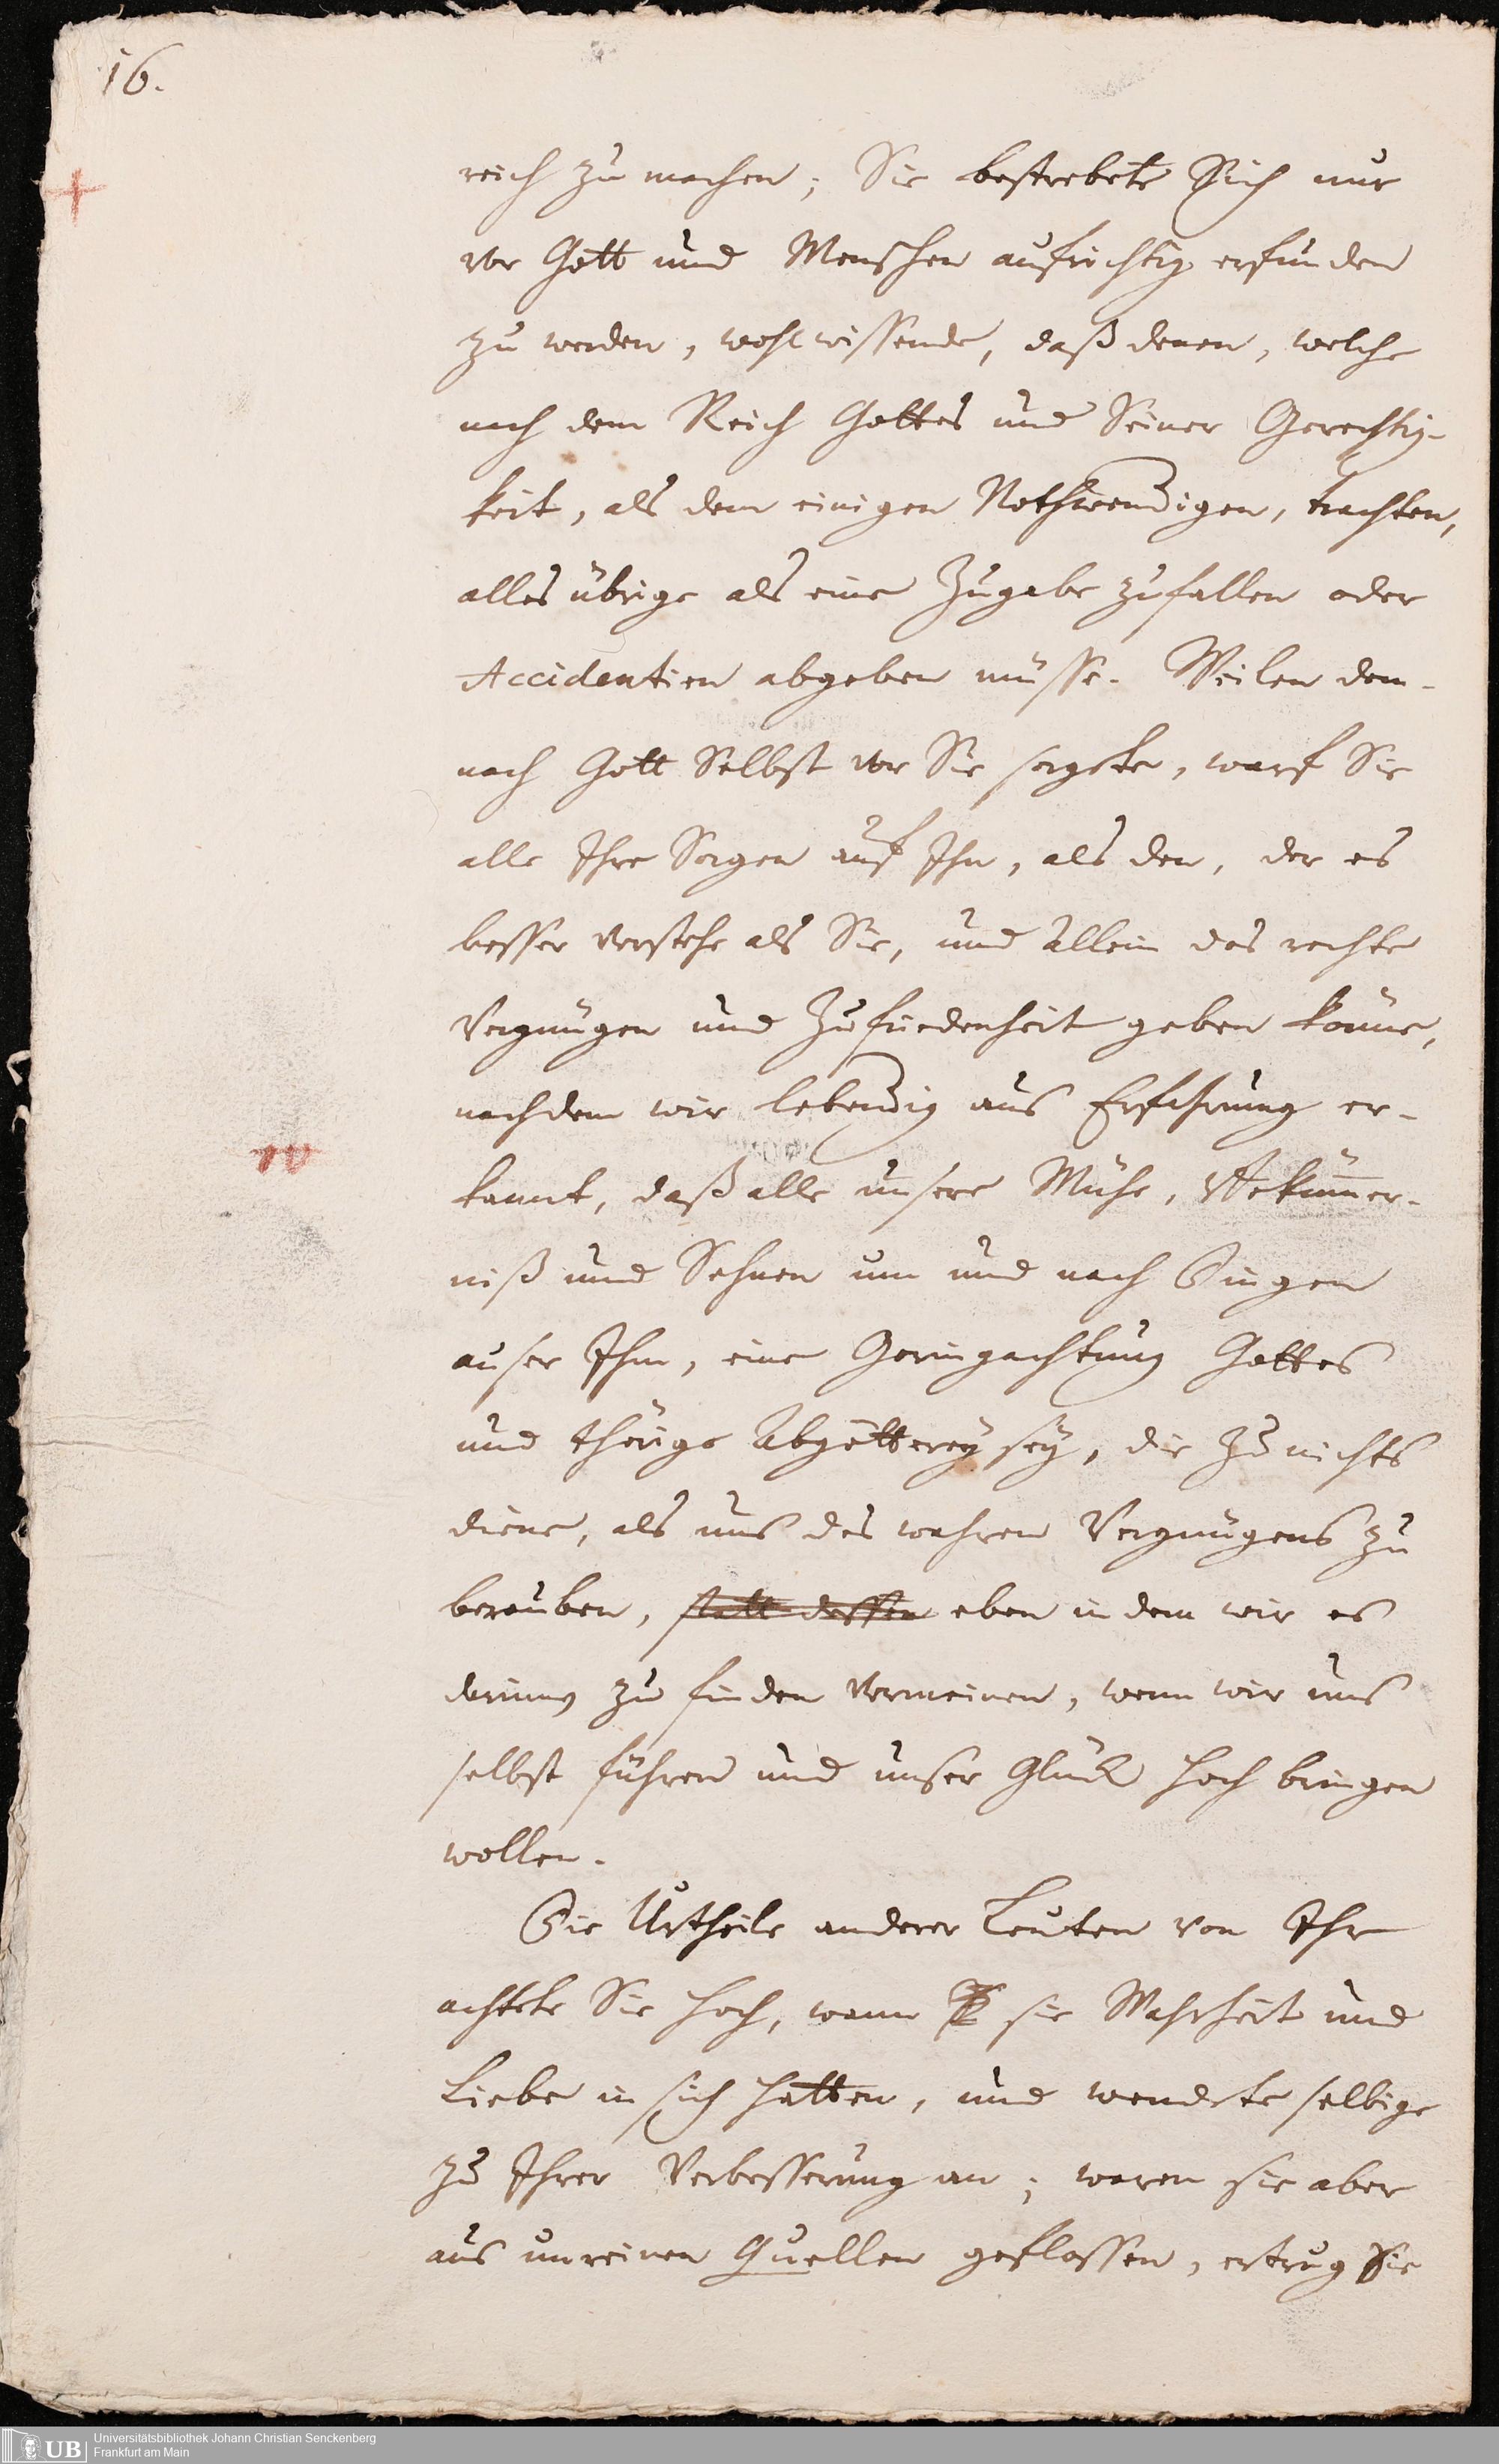 16.
reich zu machen; Sie bestrebete Sich nur
vor Gott und Menschen aufrichtig erfunden
zu werden, wohl wissende, daß denen, welche
nach dem Reich Gottes und Seiner Gerechtig-
keit, als dem einigen Nothwendigen, trachten,
alles übrige als eine Zugabe zufallen oder
Accidentien abgeben müsse. Weilen dem-
nach Gott Selbst vor Sie sorgete, warf Sie
alle Ihre Sorgen auf Ihn, als den, der es
besser verstehe als Sie, und allein das rechte
Vergnügen und Zufriedenheit geben könne,
nachdem wir lebendig aus Erfahrung er-
kannt, daß alle unsere Mühe, Bekümmer-
niß und Sehnen um und nach Dingen
auser Ihm, eine Geringachtung Gottes
und thörige Abgötterey sey, die zu nichts
diene, als uns des wahren Vergnügens zu
berauben, statt dessen eben in dem wir es
darinn zu finden vermeinen, wenn wir uns
selbst führen und unser Glück hoch bringen
wollen.
Die Urtheile anderer Leuten von Ihr
achtete Sie hoch, wann sie Wahrheit und
Liebe in sich hatten, und wendete selbige
zu Ihrer Verbesserung an; waren sie aber
aus unreinen Quellen geflossen, ertrug Sie
UB Universitätsbibliothek Johann Christian Senckenberg
Frankfurt am Main